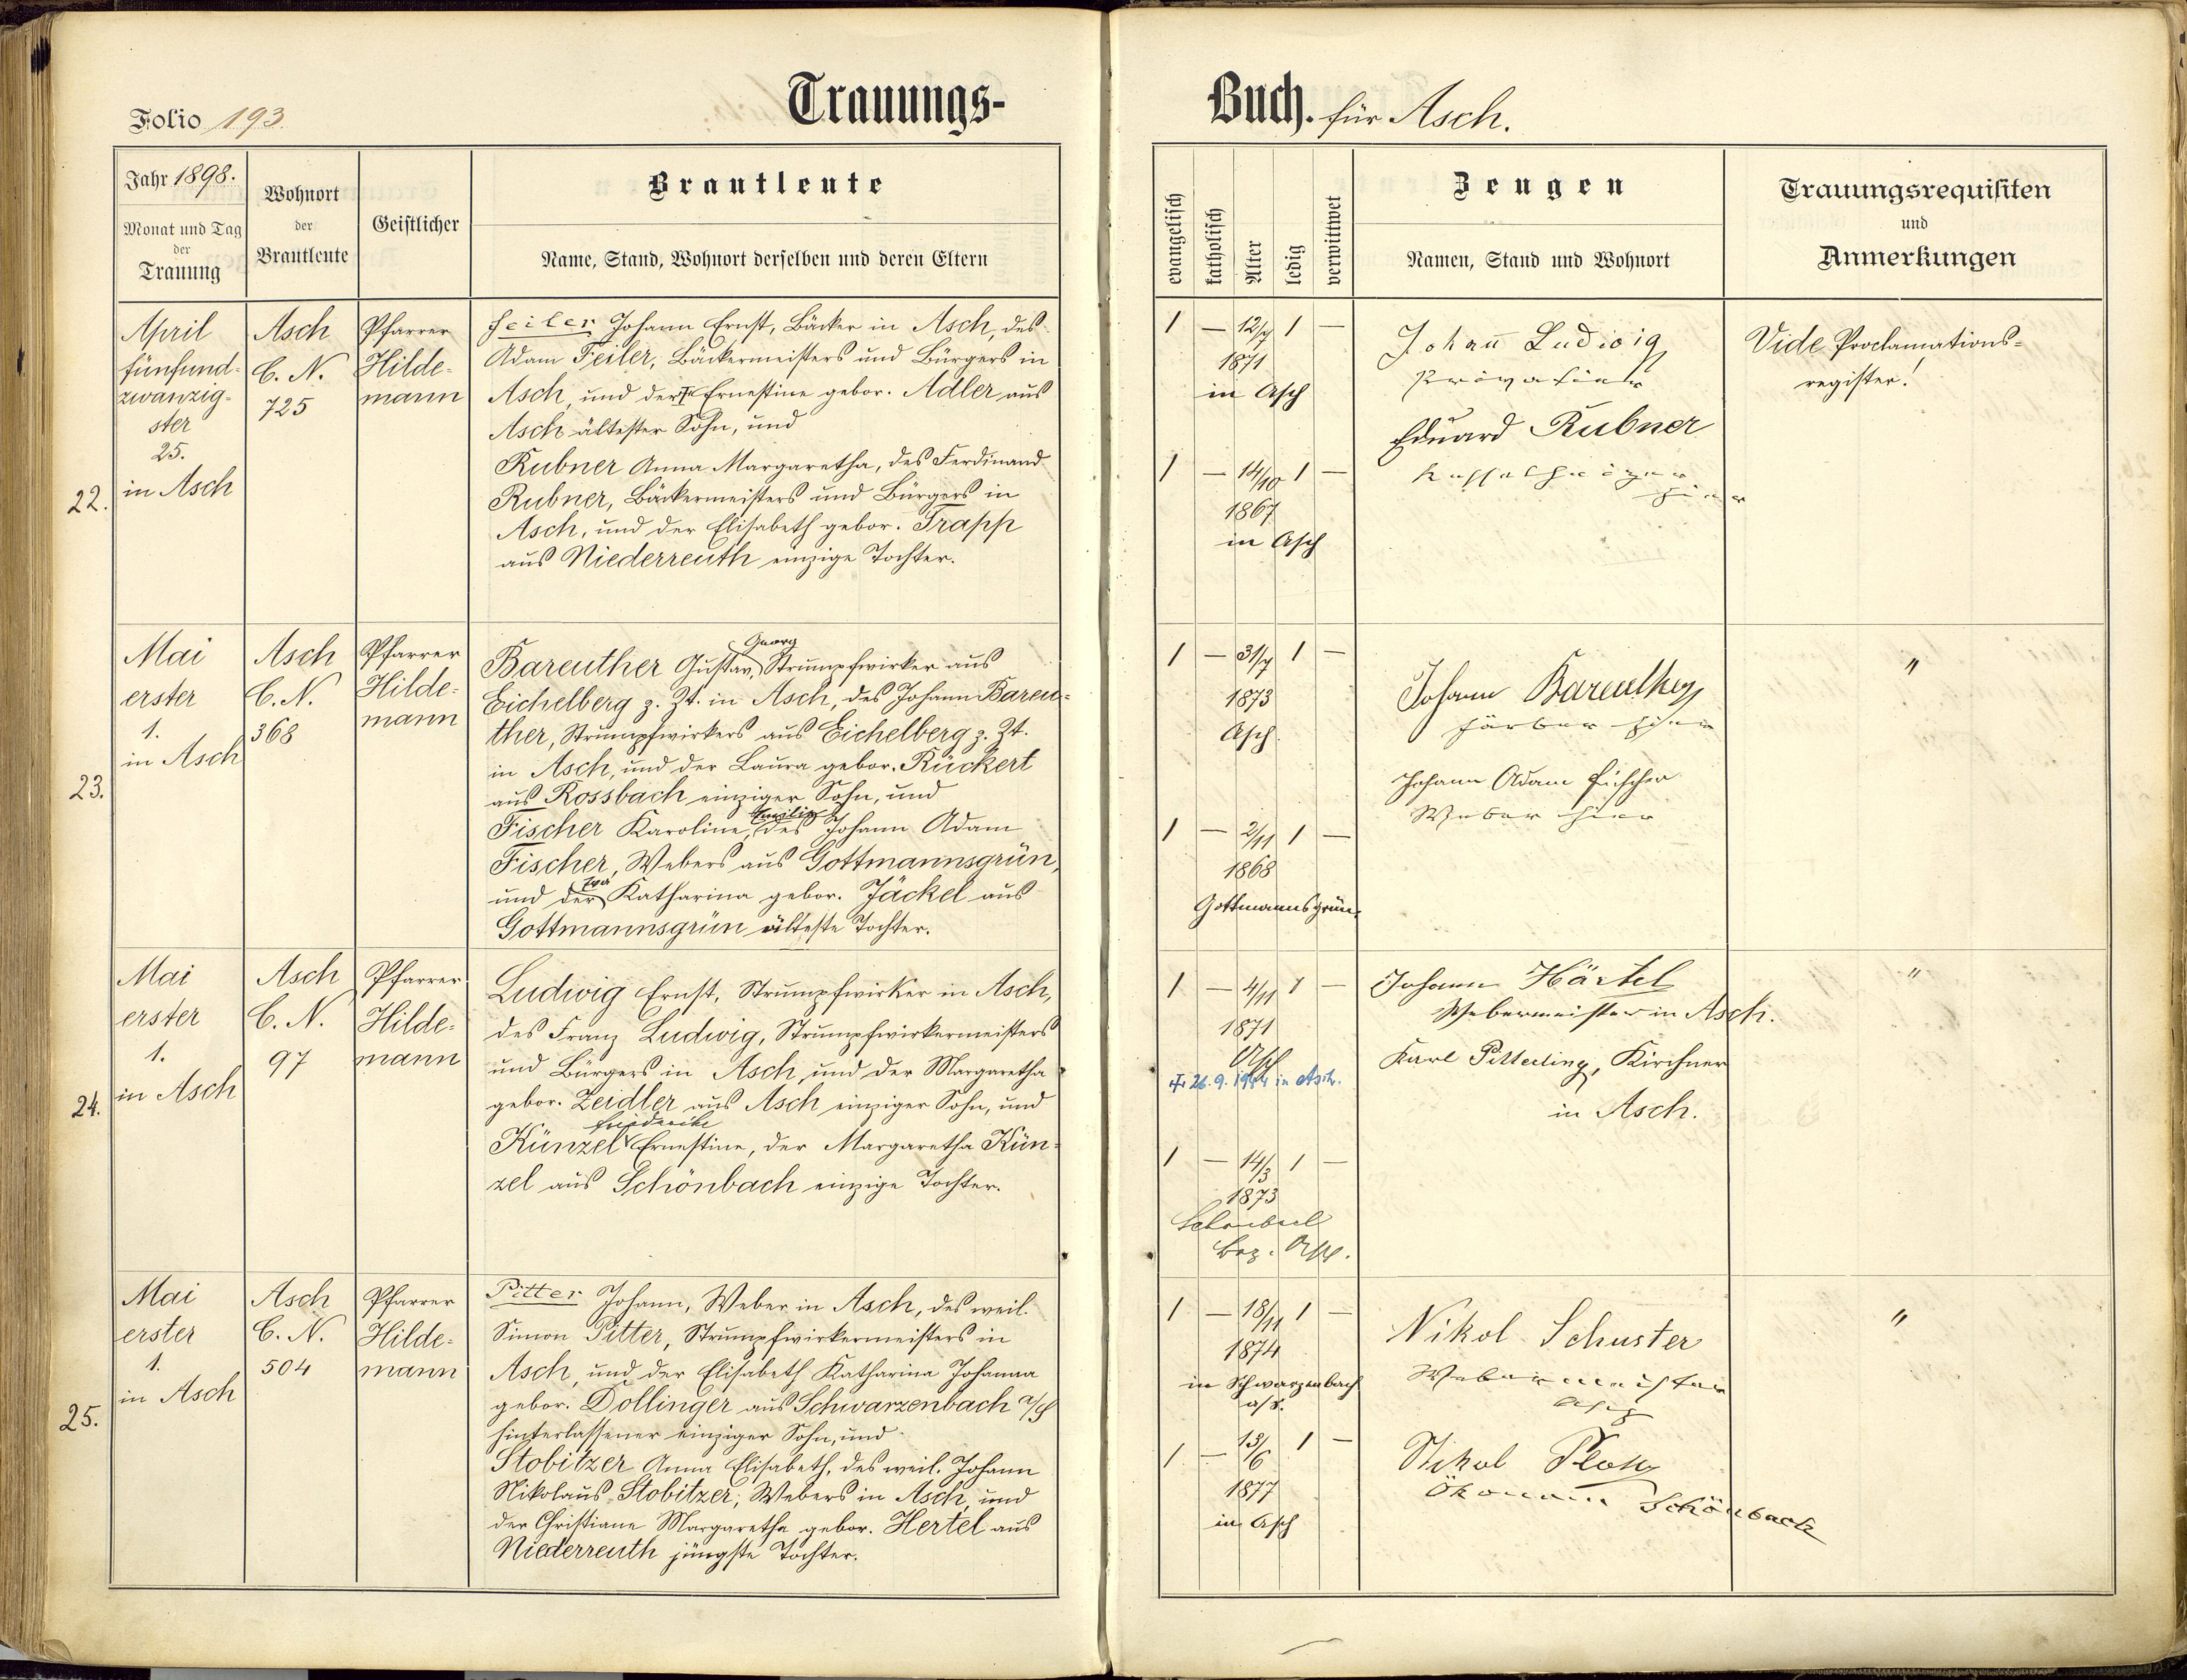 Folio 193.
Trauungs-
Buch. für Asch.
Jahr 1898.
Monat und Tag
der
Trauung
Wohnort
der
Brautleute
Geistlicher
Brautleute
Name, Stand, Wohnort derselben und deren Eltern
evangelisch
katholisch
Alter
ledig
verwittwet
Zeugen
Namen, Stand und Wohnort
Trauungsrequisiten
und
Anmerkungen
22.
April
fünfund-
zwanzig-
ster
25.
in Asch
Asch
C. N.
725
Pfarrer
Hilde-
mann
Feiler Johann Ernst, Bäcker in Asch, des
Adam Feiler, Bäckermeisters und Bürgers in
Asch, und der Ernestine gebor. Adler aus
Asch ältester Sohn, und
Rubner Anna Margaretha, des Ferdinand
Rubner, Bäckermeisters und Bürgers in
Asch, und der Elisabeth gebor. Trapp
aus Niederreuth einzige Tochter.
1 — 12/7 1 —
1871
in Asch
1 — 14/10 1 —
1867
in Asch
Johann Ludwig
Privatier
Eduard Rubner
hier
Vide Proclamations-
register!
23.
Mai
erster
1.
in Asch
Asch
C. N.
368
Pfarrer
Hilde-
mann
Georg
Bareuther Gustav, Strumpfwirker aus
Eichelberg z. Zt. in Asch, des Johann Bareu-
ther, Strumpfwirkers aus Eichelberg z. Zt.
in Asch, und der Laura gebor. Rückert
aus Rossbach einziger Sohn, und
Emilie
Fischer Karoline, des Johann Adam
Fischer, Webers aus Gottmannsgrün,
Eva
und der Katharina gebor. Jäckel aus
Gottmannsgrün älteste Tochter.
1 — 31/7 1 —
1873
Asch.
1 — 2/11 1 —
1868
Gottmannsgrün.
Johann Bareuther
Färber hier
Johann Adam Fischer
Weber hier
"
24.
Mai
erster
1.
in Asch
Asch
C. N.
97
Pfarrer
Hilde-
mann
Ludwig Ernst, Strumpfwirker in Asch,
des Franz Ludwig, Strumpfwirkermeisters
und Bürgers in Asch, und der Margaretha
gebor. Zeidler aus Asch einziger Sohn, und
Friedericke
Künzel Ernestine, der Margaretha Kün-
zel aus Schönbach einzige Tochter.
1 — 4/11 1 —
1871
Asch
26.9.1944 in Asch.
1 — 14/3 1 —
1873
Bez. Asch.
Johann Härtel
Webermeister in Asch.
Karl Pitterling, Kirchner
in Asch.
"
25.
Mai
erster
1.
in Asch
Asch
C. N.
504
Pfarrer
Hilde-
mann
Pitter Johann, Weber in Asch, des weil.
Simon Pitter, Strumpfwirkermeisters in
Asch, und der Elisabeth Katharina Johanna
gebor. Dollinger aus Schwarzenbach a/S
hinterlassener einziger Sohn, und
Stobitzer Anna Elisabeth, des weil. Johann
Nikolaus Stobitzer, Webers in Asch, und
der Christiane Margaretha gebor. Hertel aus
Niederreuth jüngste Tochter.
1 — 18/11 1 —
1874
in Schwarzenbach
a/S.
1 — 13/6 1 —
1877
in Asch
Nikol Schuster
Webermeister
Asch
Nikol Ploß
Ökonom Schönbach
"